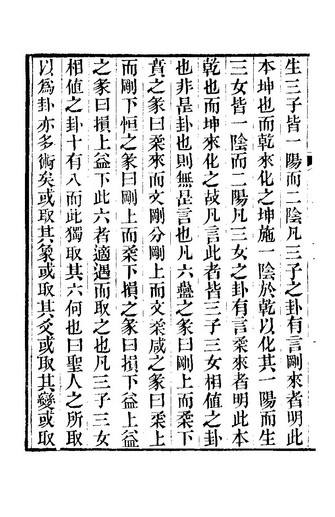 生三子皆一陽而二陰凡三子之卦有言剛來者明此
本坤也而乾來化之坤施一陰於乾以化其一陽而生
三女皆一陰而二陽凡三女之卦有言柔來者明此本
乾也而坤來化之故凡言此者皆三子三女相值之卦
也非是卦也則無是言也凡六蠱之彖曰剛上而柔下
賁之彖曰柔來而文剛分剛上而文柔咸之彖曰柔上
而剛下恒之彖曰剛上而柔下損之彖曰損下益上益
之彖曰損上益下此六者適遇而取之也凡三子三女
相值之卦十有八而此獨取其六何也曰聖人之所取
以爲卦亦多術矣或取其象或取其爻或取其變或取